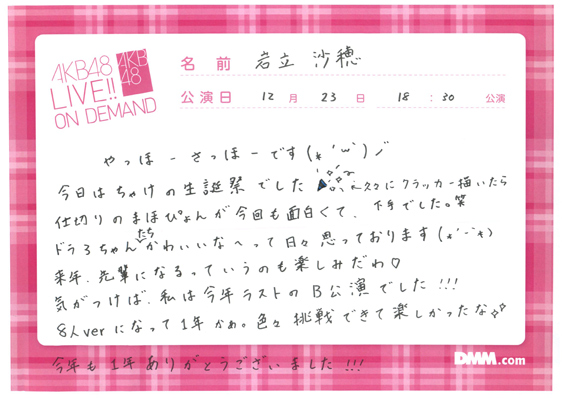 AKB48
LIVE!!
ON DEMAND
AKB
48
名前 岩立 沙穂
公演日 12月 23日 18:30 公演
やっほーさっほーです(*´ω`)ノ
今日はちゃけの生誕祭でした ←久々にクラッカー描いたら
下手でした。笑
仕切りのまほぴょんが今回も面白くて、
ドラ3ちゃんたちかわいいなーって日々思っております(*´-`*)
来年、先輩になるっていうのも楽しみだわ♡
気がつけば、私は今年ラストのB公演でした!!!
8人verになって1年かぁ。色々挑戦できて楽しかったな☆☆
今年も1年ありがとうございました!!!
DMM.com